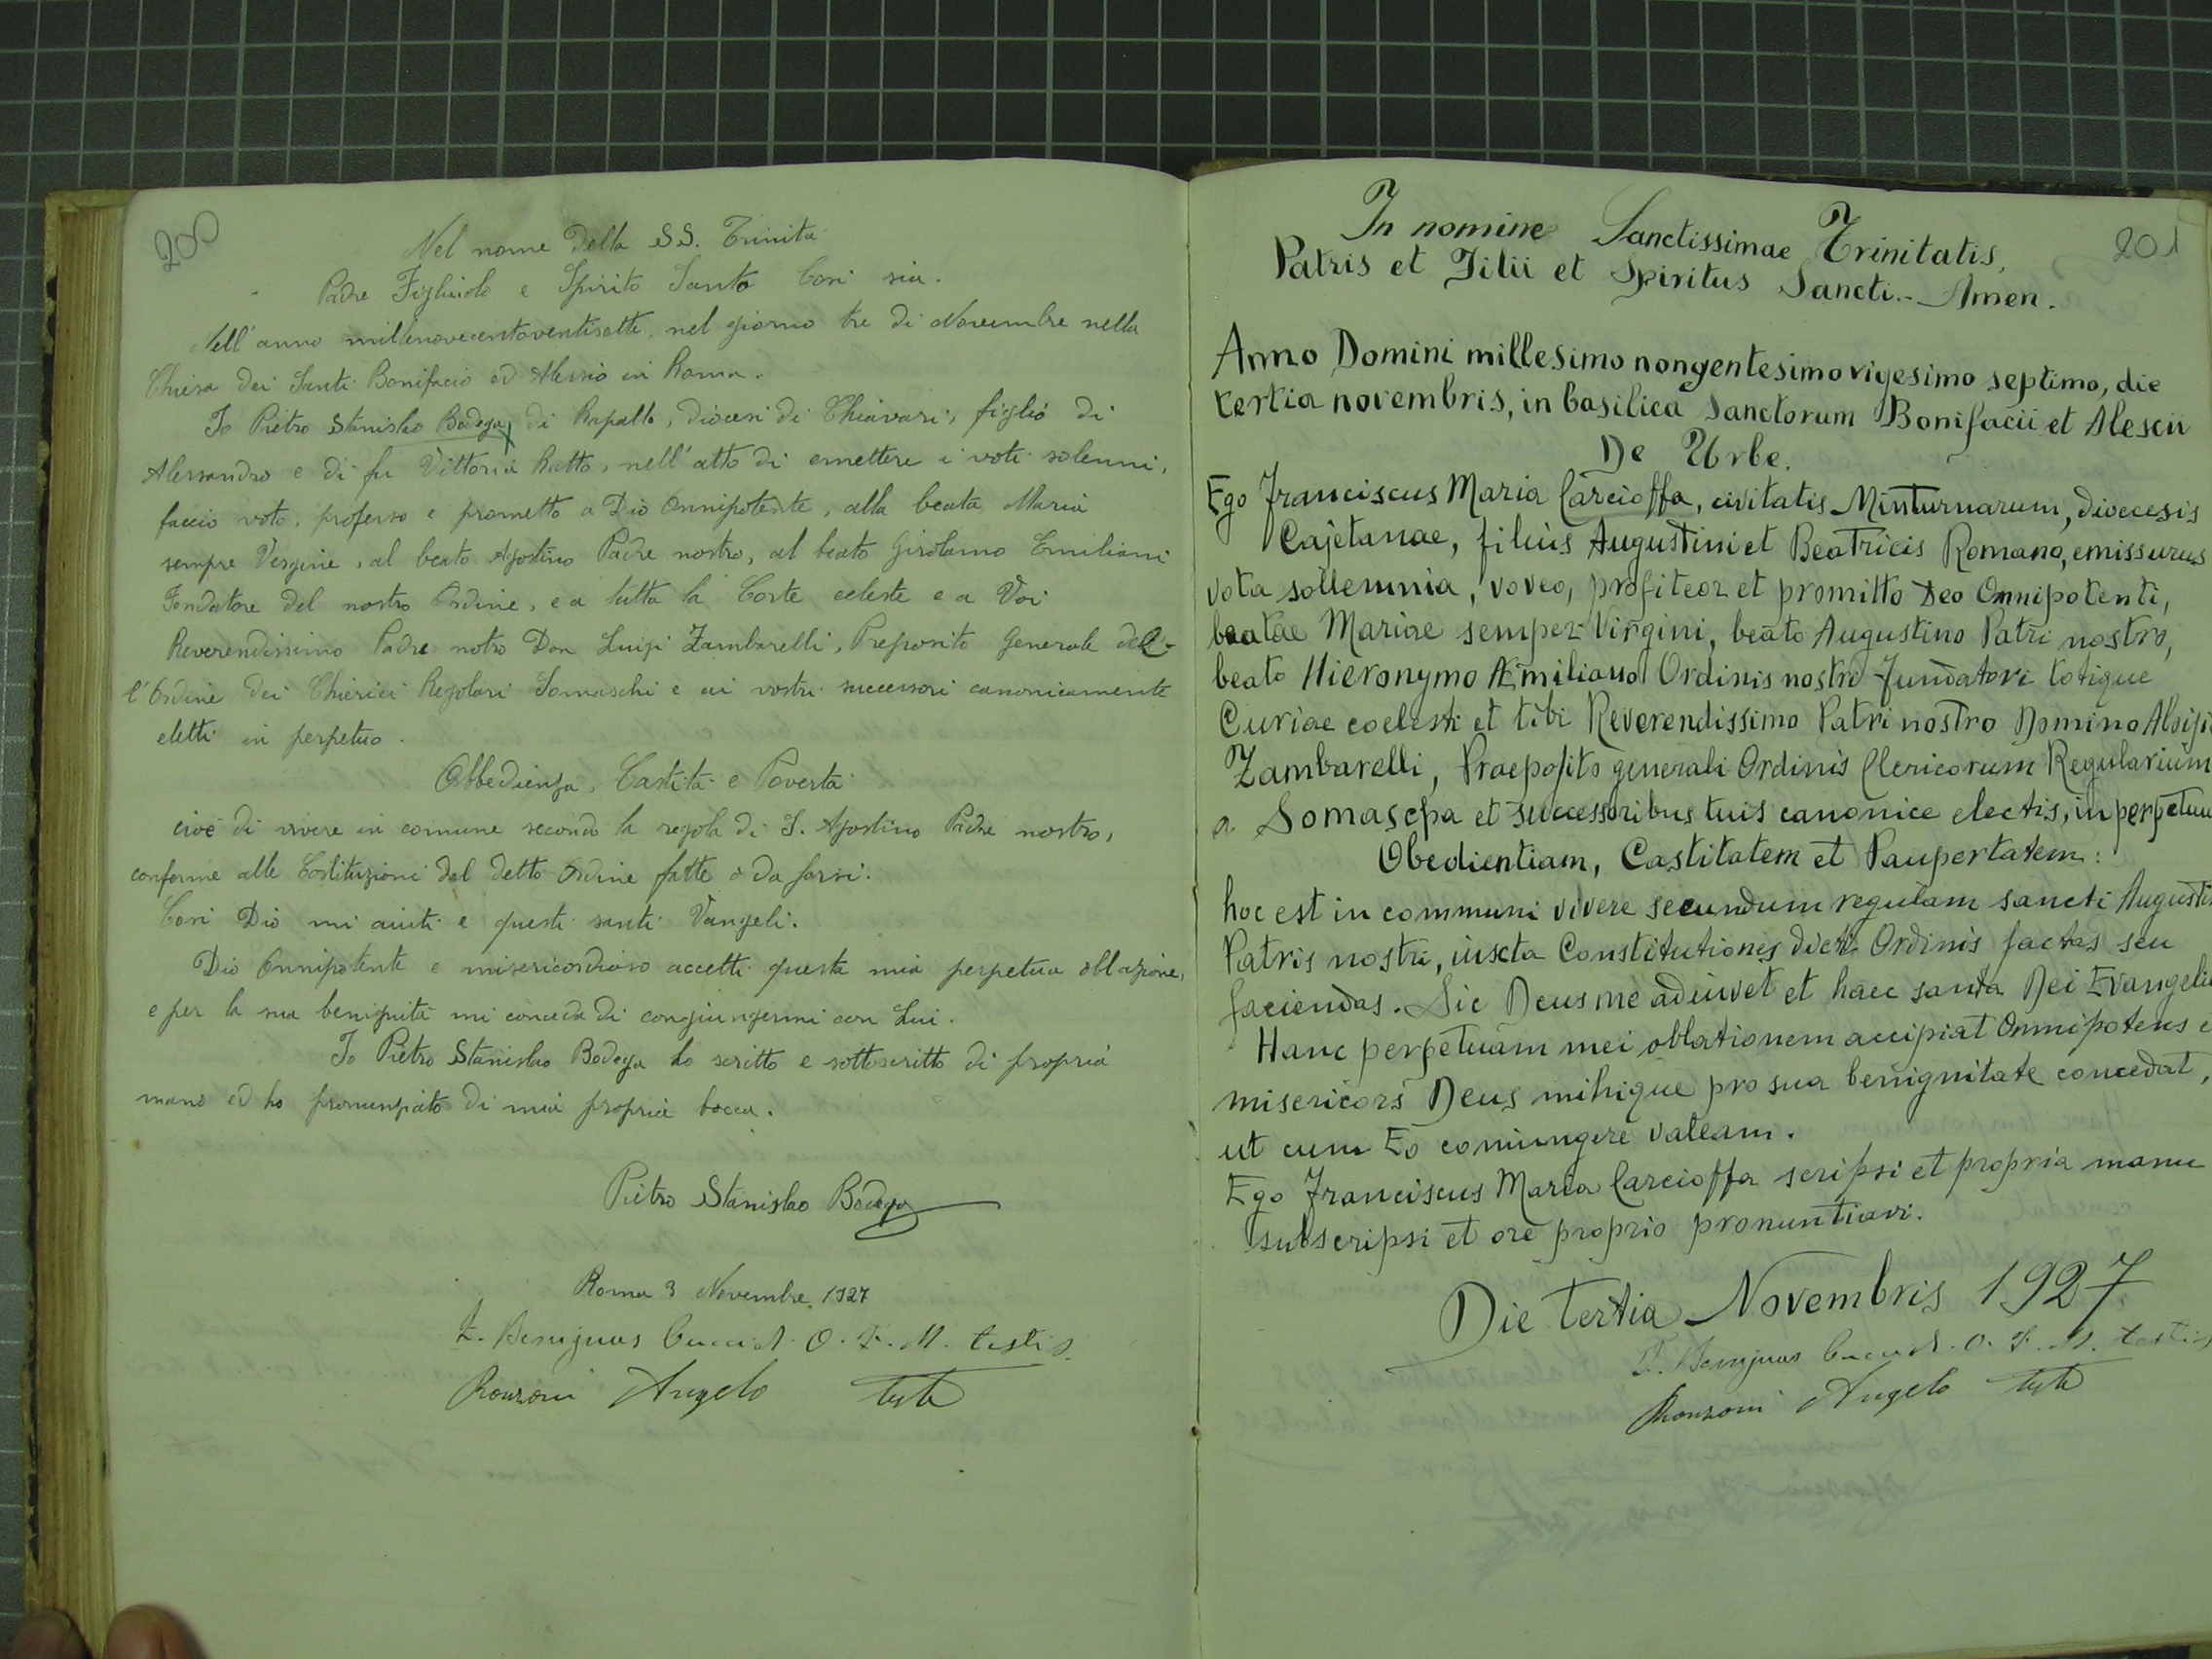 200
Nel nome della SS. Trinità
Padre Figliuolo e Spirito Santo Così sia.
Nell'anno millenovecentoventisette, nel giorno tre di Novembre nella
Chiesa dei Santi Bonifacio ed Alessio in Roma.
Io Pietro Stanislao Bodega, di Rapallo, diocesi di Chiavari, figlio di
Alessandro e di fu Vittoria Ratto, nell'atto di emettere i voti solenni,
faccio voto, professo e prometto a Dio Onnipotente, alla beata Maria
sempre Vergine, al beato Agostino Padre nostro, al beato Girolamo Emiliani
Fondatore del nostro Ordine, e a tutta la Corte celeste e a Voi
Reverendissimo Padre notro Don Luigi Zambarelli, Preposito Generale del-
l'Ordine dei Chierici Regolari Somaschi e ai vostri successori canonicamente
eletti in perpetuo.
Obbedienza, Castità e Povertà
cioè di vivere in comune secondo la regola di S. Agostino Padre nostro,
conforme alle Costituzioni del detto Ordine fatte o da farsi.
Così Dio mi aiuti e questi santi Vangeli.
Dio Onnipotente e misericordioso accetti questa mia perpetua oblazione,
e per la sua benignità mi conceda di congiungermi con Lui.
Io Pietro Stanislao Bodega ho scritto e sottoscritto di propria
mano ed ho pronunziato di mia propria bocca.
Pietro Stanislao Bodega
Roma 3 Novembre 1927
Benignus O. F. M. testis
Ronzoni Angelo teste
201
In nomine Sanctissimae Trinitatis,
Patris et Filii et Spiritus Sancti.- Amen.
Anno Domini millesimo nongentesimo vigesimo septimo, die
tertia novembris, in basilica Sanctorum Bonifacii et Alexii
De Urbe.
Ego Franciscus Maria Carcioffa, civitatis Minturnarum, dioecesis
Cajetanae, filius Augustini et Beatricis Romano, emissurus
vota sollemnia, voveo, profiteor et promitto Deo Omnipotenti,
beatae Mariae semper Virgini, beato Augustino Patri nostro,
beato Hieronymo Æmiliano Ordinis nostri Fundatori totique
Curiae coelesti et tibi Reverendissimo Patri nostro Domino Aloisio
Zambarelli, Praeposito generali Ordinis Clericorum Regularium
a Somascha et successoribus tuis canonice electis, in perpetuu
Obedientiam, Castitatem et Paupertatem:
hoc est in communi vivere secundum regulam sancti Augusti
Patris nostri, iuxta Constitutiones dicti Ordinis factas seu
faciendas. Sic Deus me adiuvet et haec santa Dei Evangelia
Hanc perpetuam mei oblationem accipiat Omnipotens e
misericors Deus mihique pro sua benignitate concedat,
ut cum Eo coniungere valeam.
Ego Franciscus Maria Carcioffa scripsi et propria manu
subscripsi et ore proprio pronuntiavi.
Die tertia Novembris 1927
Benignus O. F. M. testis
Ronzoni Angelo teste